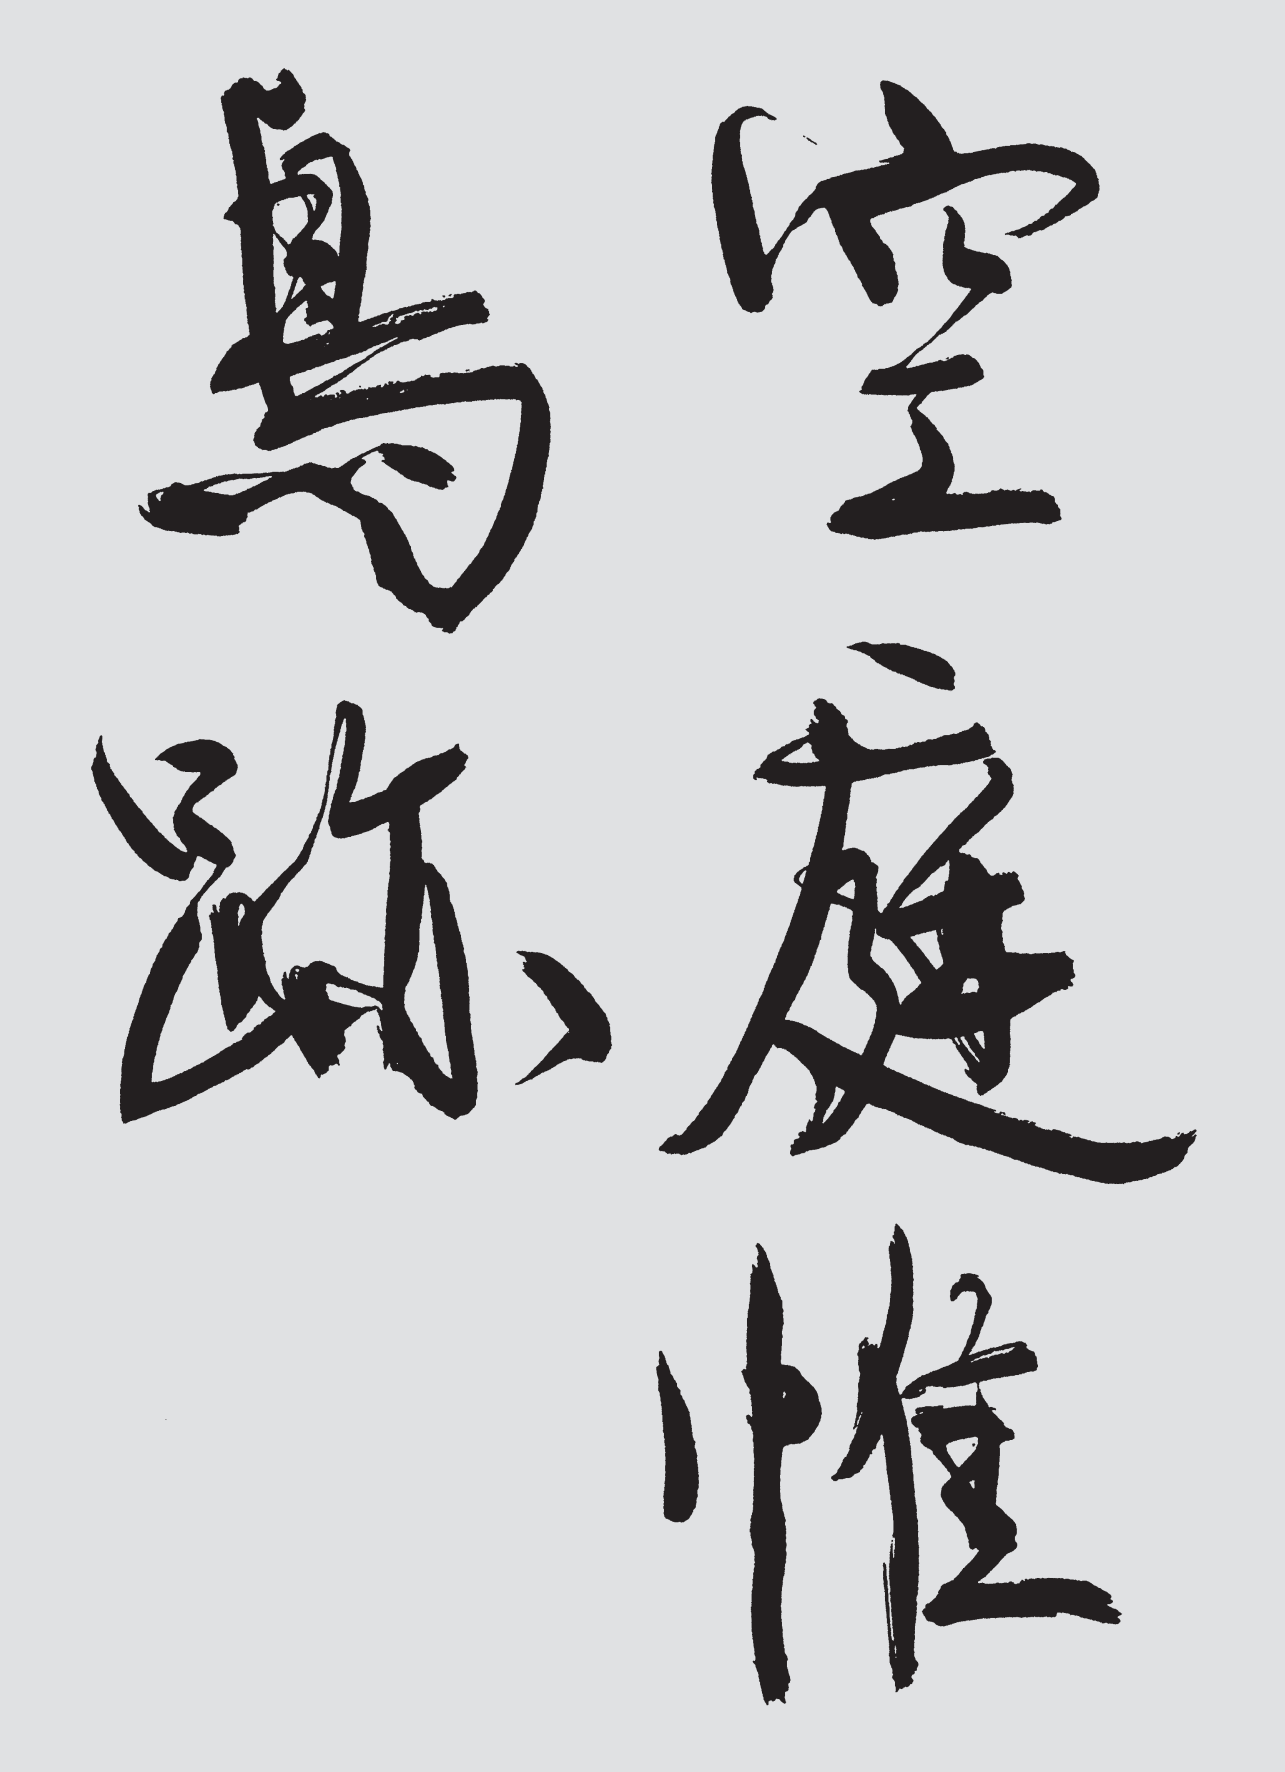 空庭惟
鳥跡